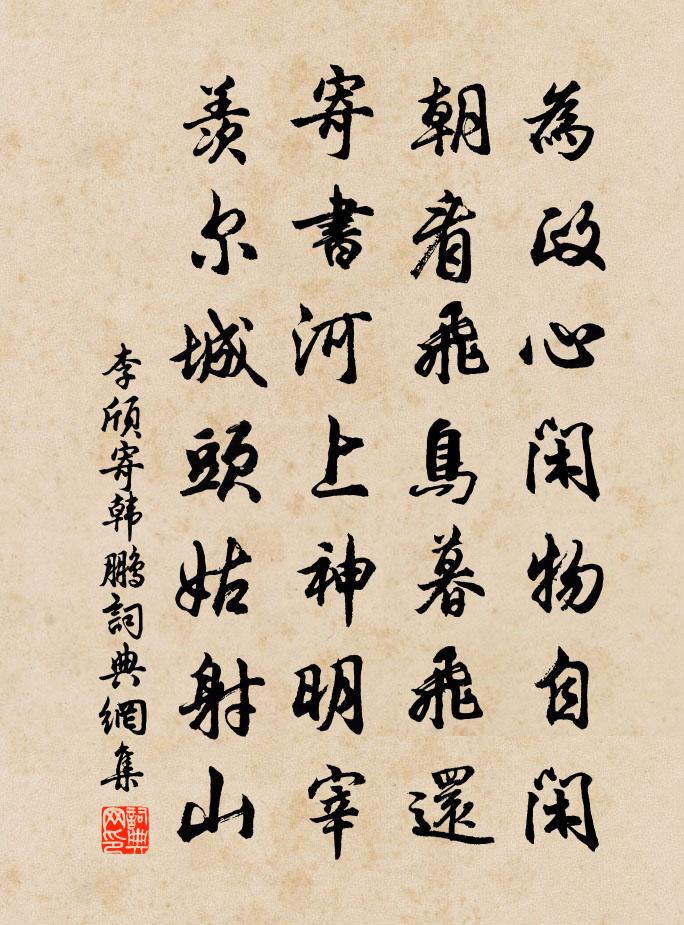 為政心闲物自闲
朝看飛鳥暮飛還
寄書河上神明宰
羨尔城頭姑射山
李颀寄韩鹏詞典網集
詞典网印